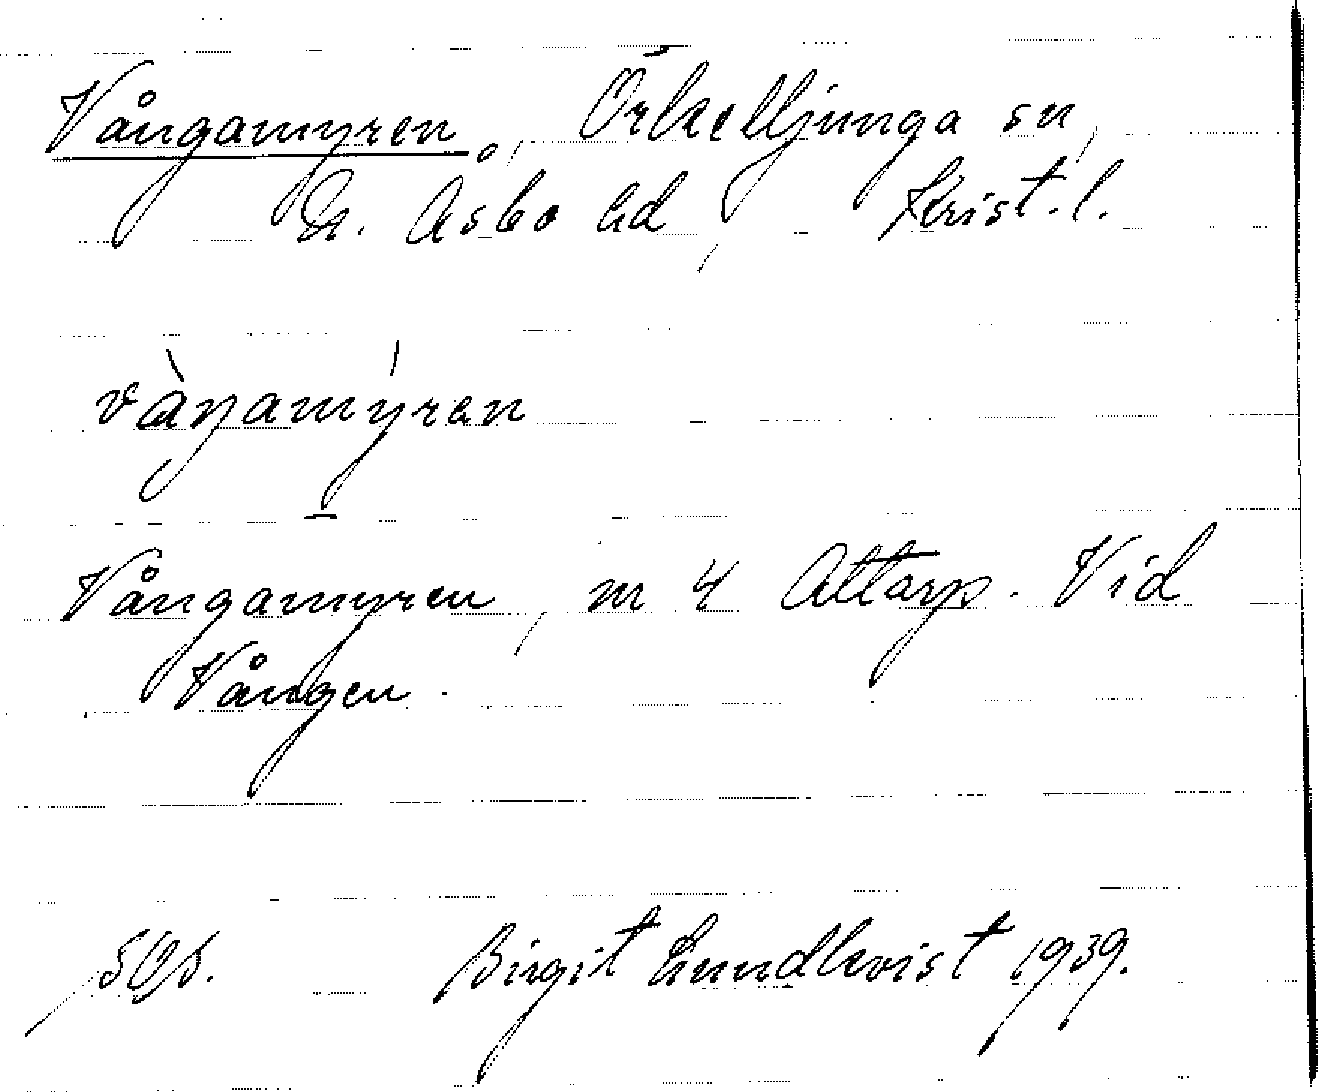 Vångamyren, Örkelljunga sn,
N. Åsbo hd, Krist. l.
vàŋamýren
Vångamyren, m 4 Attarp. Vid
Vången.
Birgit Lundkvist 1939.